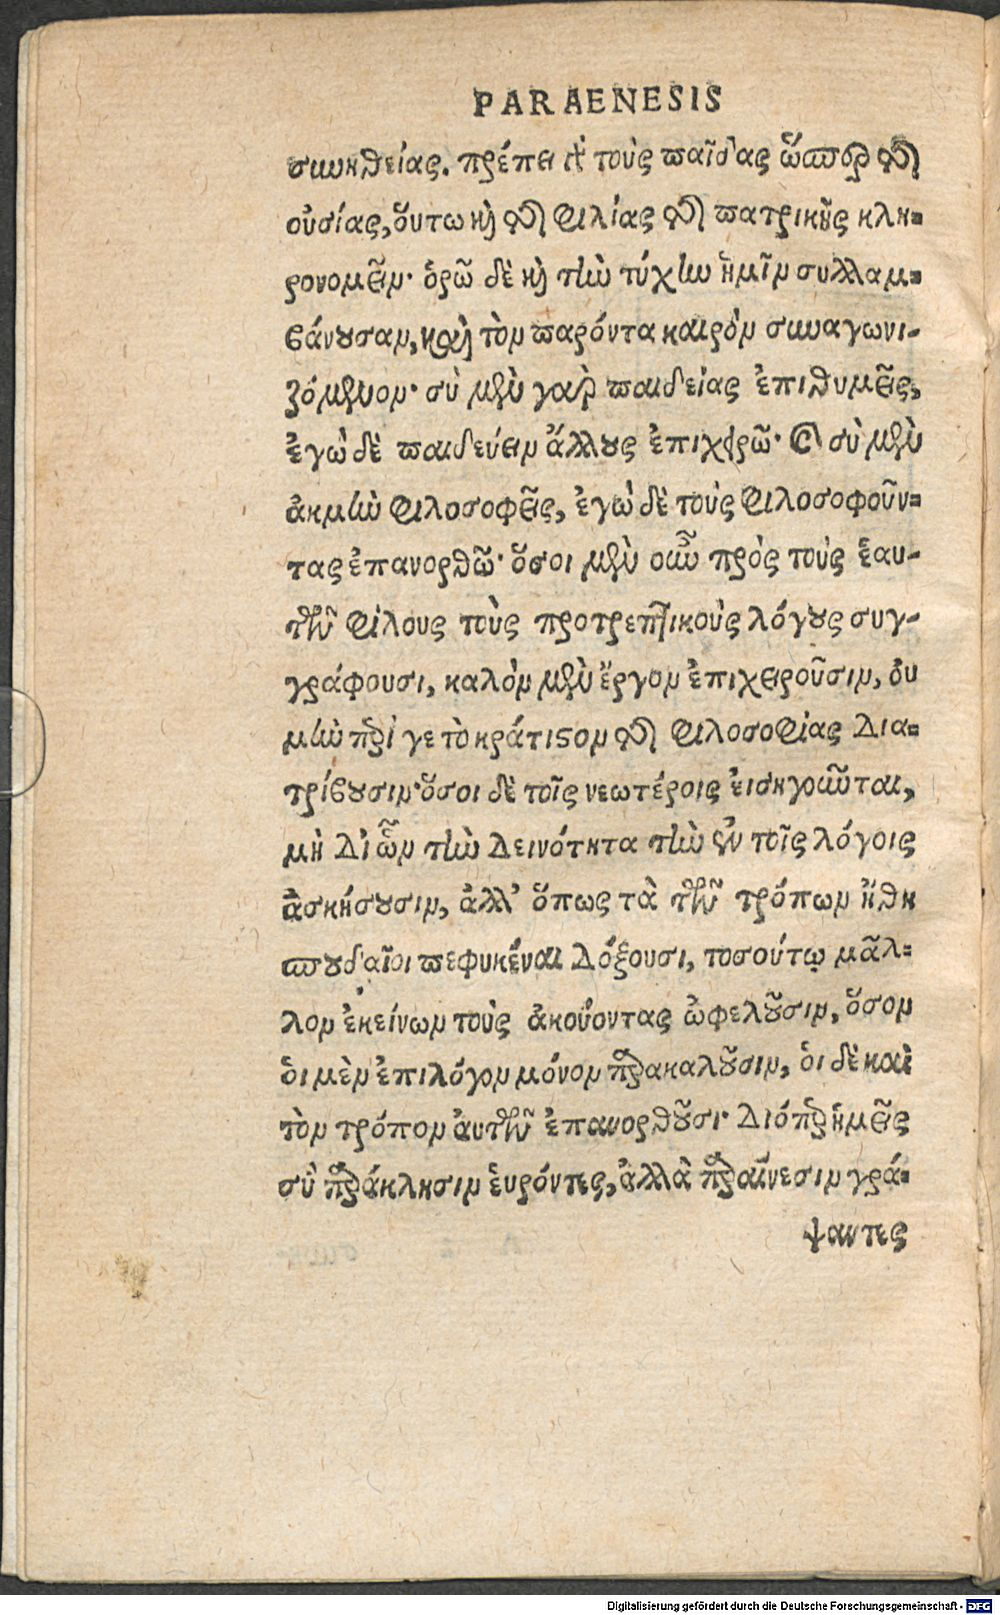 PARAENESIS
συνηθείας. πρέπει γὰρ τοὺς παῖδας ὥσπερ τῆς
οὐσίας, ὅυτω καὶ τῆς φιλίας τῆς πατρικῆς κλη-
ρονομεῖν· ὁρῶ δὲ καὶ τὴν τύχην ἡμῖν συλλαμ-
βάνουσαν, καὶ τὸν παρόντα καιρὸν συναγωνι-
ζόμενον· σὺ μὲν γὰρ παιδείας ἐπιθυμεῖς,
ἐγὼ δὲ παιδεύειν ἄλλους ἐπιχειρῶ· καὶ σὺ μὲν
ἀκμὴν φιλοσοφεῖς, ἐγὼ δὲ τοὺς φιλοσοφοῦν-
τας ἐπανορθῶ· ὅσοι μὲν οὖν πρὸς τοὺς ἑαυ-
τῶν φίλους τοὺς προτρεπτικοὺς λόγους συγ-
γράφουσι, καλὸν μὲν ἔργον ἐπιχειροῦσιν, ὀυ
μὴν περί γε τὸ κράτιστον τῆς φιλοσοφίας Δια-
τρίβουσιν· ὅσοι δὲ τοῖς νεωτέροις ἐισηγοῦνται,
μὴ Δι᾽ ὧν τὴν Δεινότητα τὴν ἐν τοῖς λόγοις
ἀσκήσουσιν, ἀλλ᾽ ὅπως τὰ τῶν τρόπων ἤθη
σπουδαῖοι πεφυκέναι Δόξουσι, τοσούτῳ μᾶλ-
λον ἐκείνων τοὺς ἀκούοντας ὠφελοῦσιν, ὅσον
ὁι μὲν ἐπιλόγον μόνον παρακαλοῦσιν, ὁι δὲ καὶ
τὸν τρόπον ἀυτῶν ἐπανορθοῦσι· Διόπερ ἡμεῖς
οὐ παράκλησιν ἑυρόντες, ἀλλὰ παραίνεσιν γρά-
ψαντες
Digitalisierung gefördert durch die Deutsche Forschungsgemeinschaft - DFG